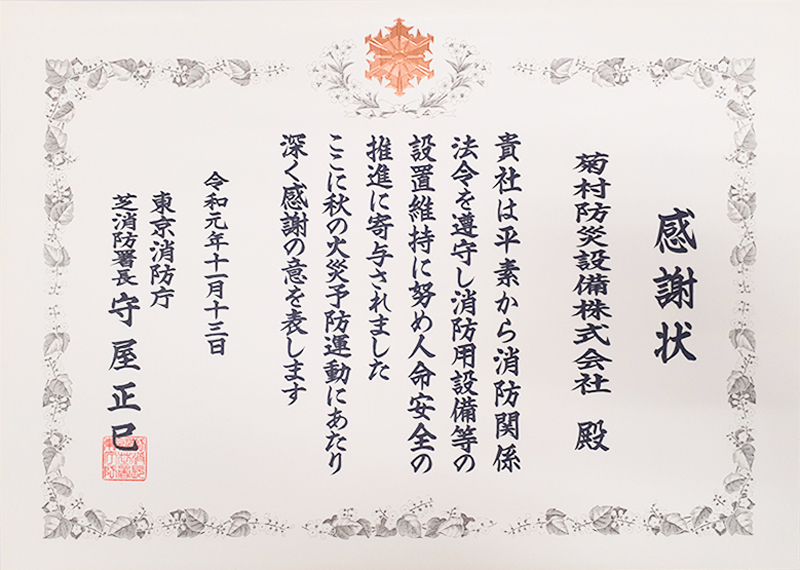 感謝状
菊村防災設備株式会社 殿
貴社は平素から消防関係
法令を遵守し消防用設備等の
設置維持に努め人命安全の
推進に寄与されました
ここに秋の火災予防運動にあたり
深く感謝の意を表します
令和元年十一月十三日
東京消防庁
芝消防署長 守屋正巳